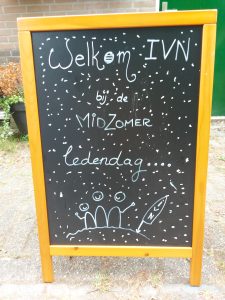 Welkom IVN
bij de
MIDZOMER
ledendag....